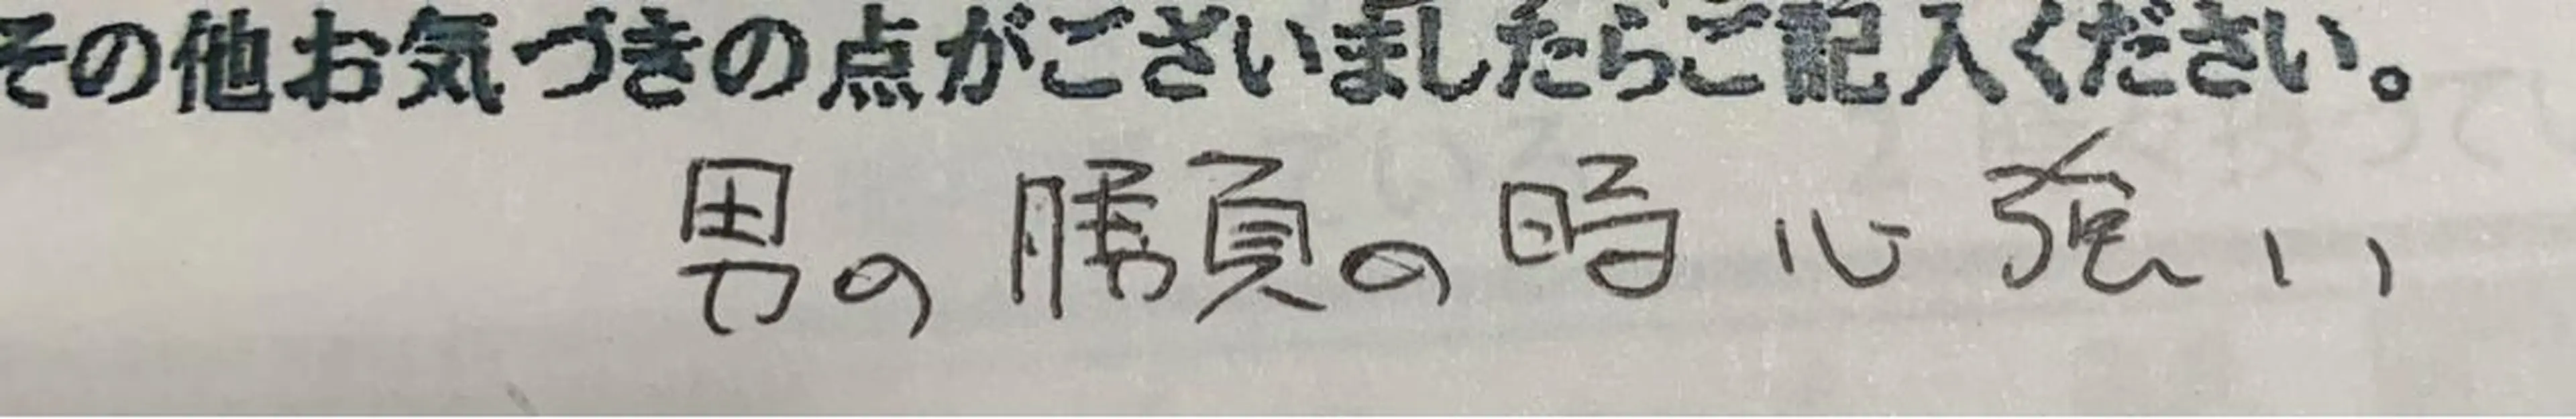 その他お気づきの点がございましたらご記入ください。
男の勝負の時心強い